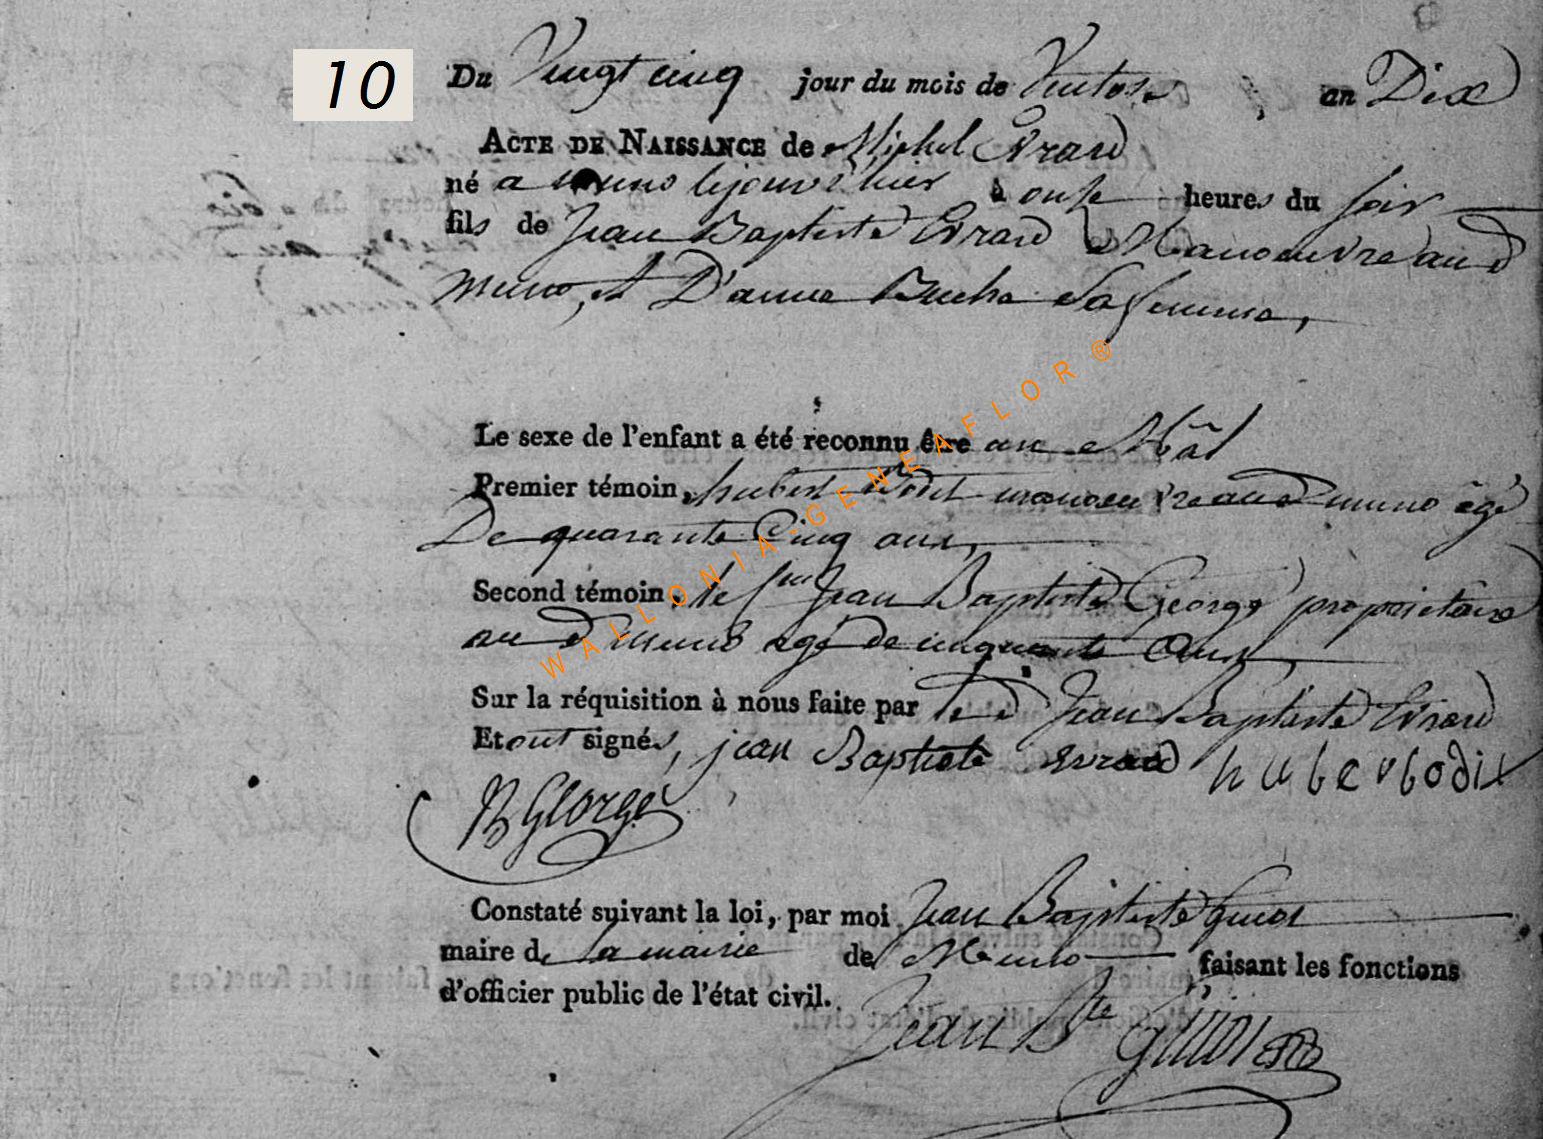 10
Du Vingt cinq jour du mois de Ventose an Dix
ACTE DE NAISSANCE de Michel Evrard
né a muno le jour d'hier à onze heures du soir
fils de Jean Baptiste Evrard Manoeuvre aud
muno, et D'anne Buche Sa femme,
Le sexe de l'enfant a été reconnu être un Mâl
Premier témoin, hubert Bodit manoeuvre aud muno âgé
De quarante Cinq ans,
Second témoin, le Jean Baptiste George propriétaire
au d muno agé de cinquante Ans
Sur la réquisition à nous faite par le d Jean Baptiste Evrard
Et ont signés, jean Baptiste Evrard huber bodit
JB George
Constaté suivant la loi, par moi Jean Baptiste Guiot
maire de la mairie de Muno, faisant les fonctions
d'officier public de l'état civil.
Jean Bte GUIOT
WALLONIA-GENEAFLOR®